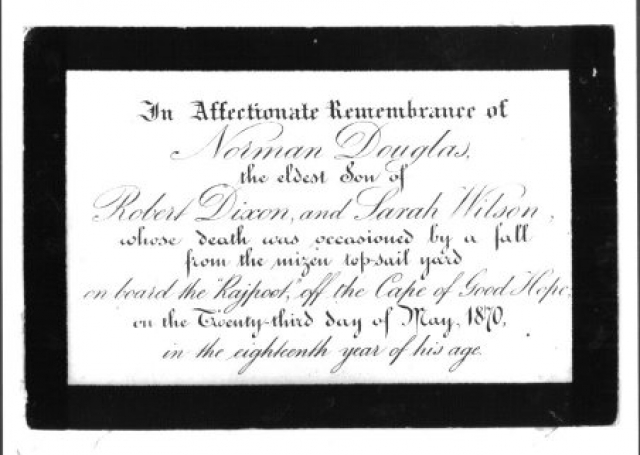 In Affectionate Remembrance of
Norman Douglas,
the eldest Son of
Robert Dixon, and Sarah Wilson,
whose death was occasioned by a fall
from the mizen top-sail yard
on board the "Rajpoot," off the Cape of Good Hope,
on the Twenty-third day of May, 1870,
in the eighteenth year of his age.